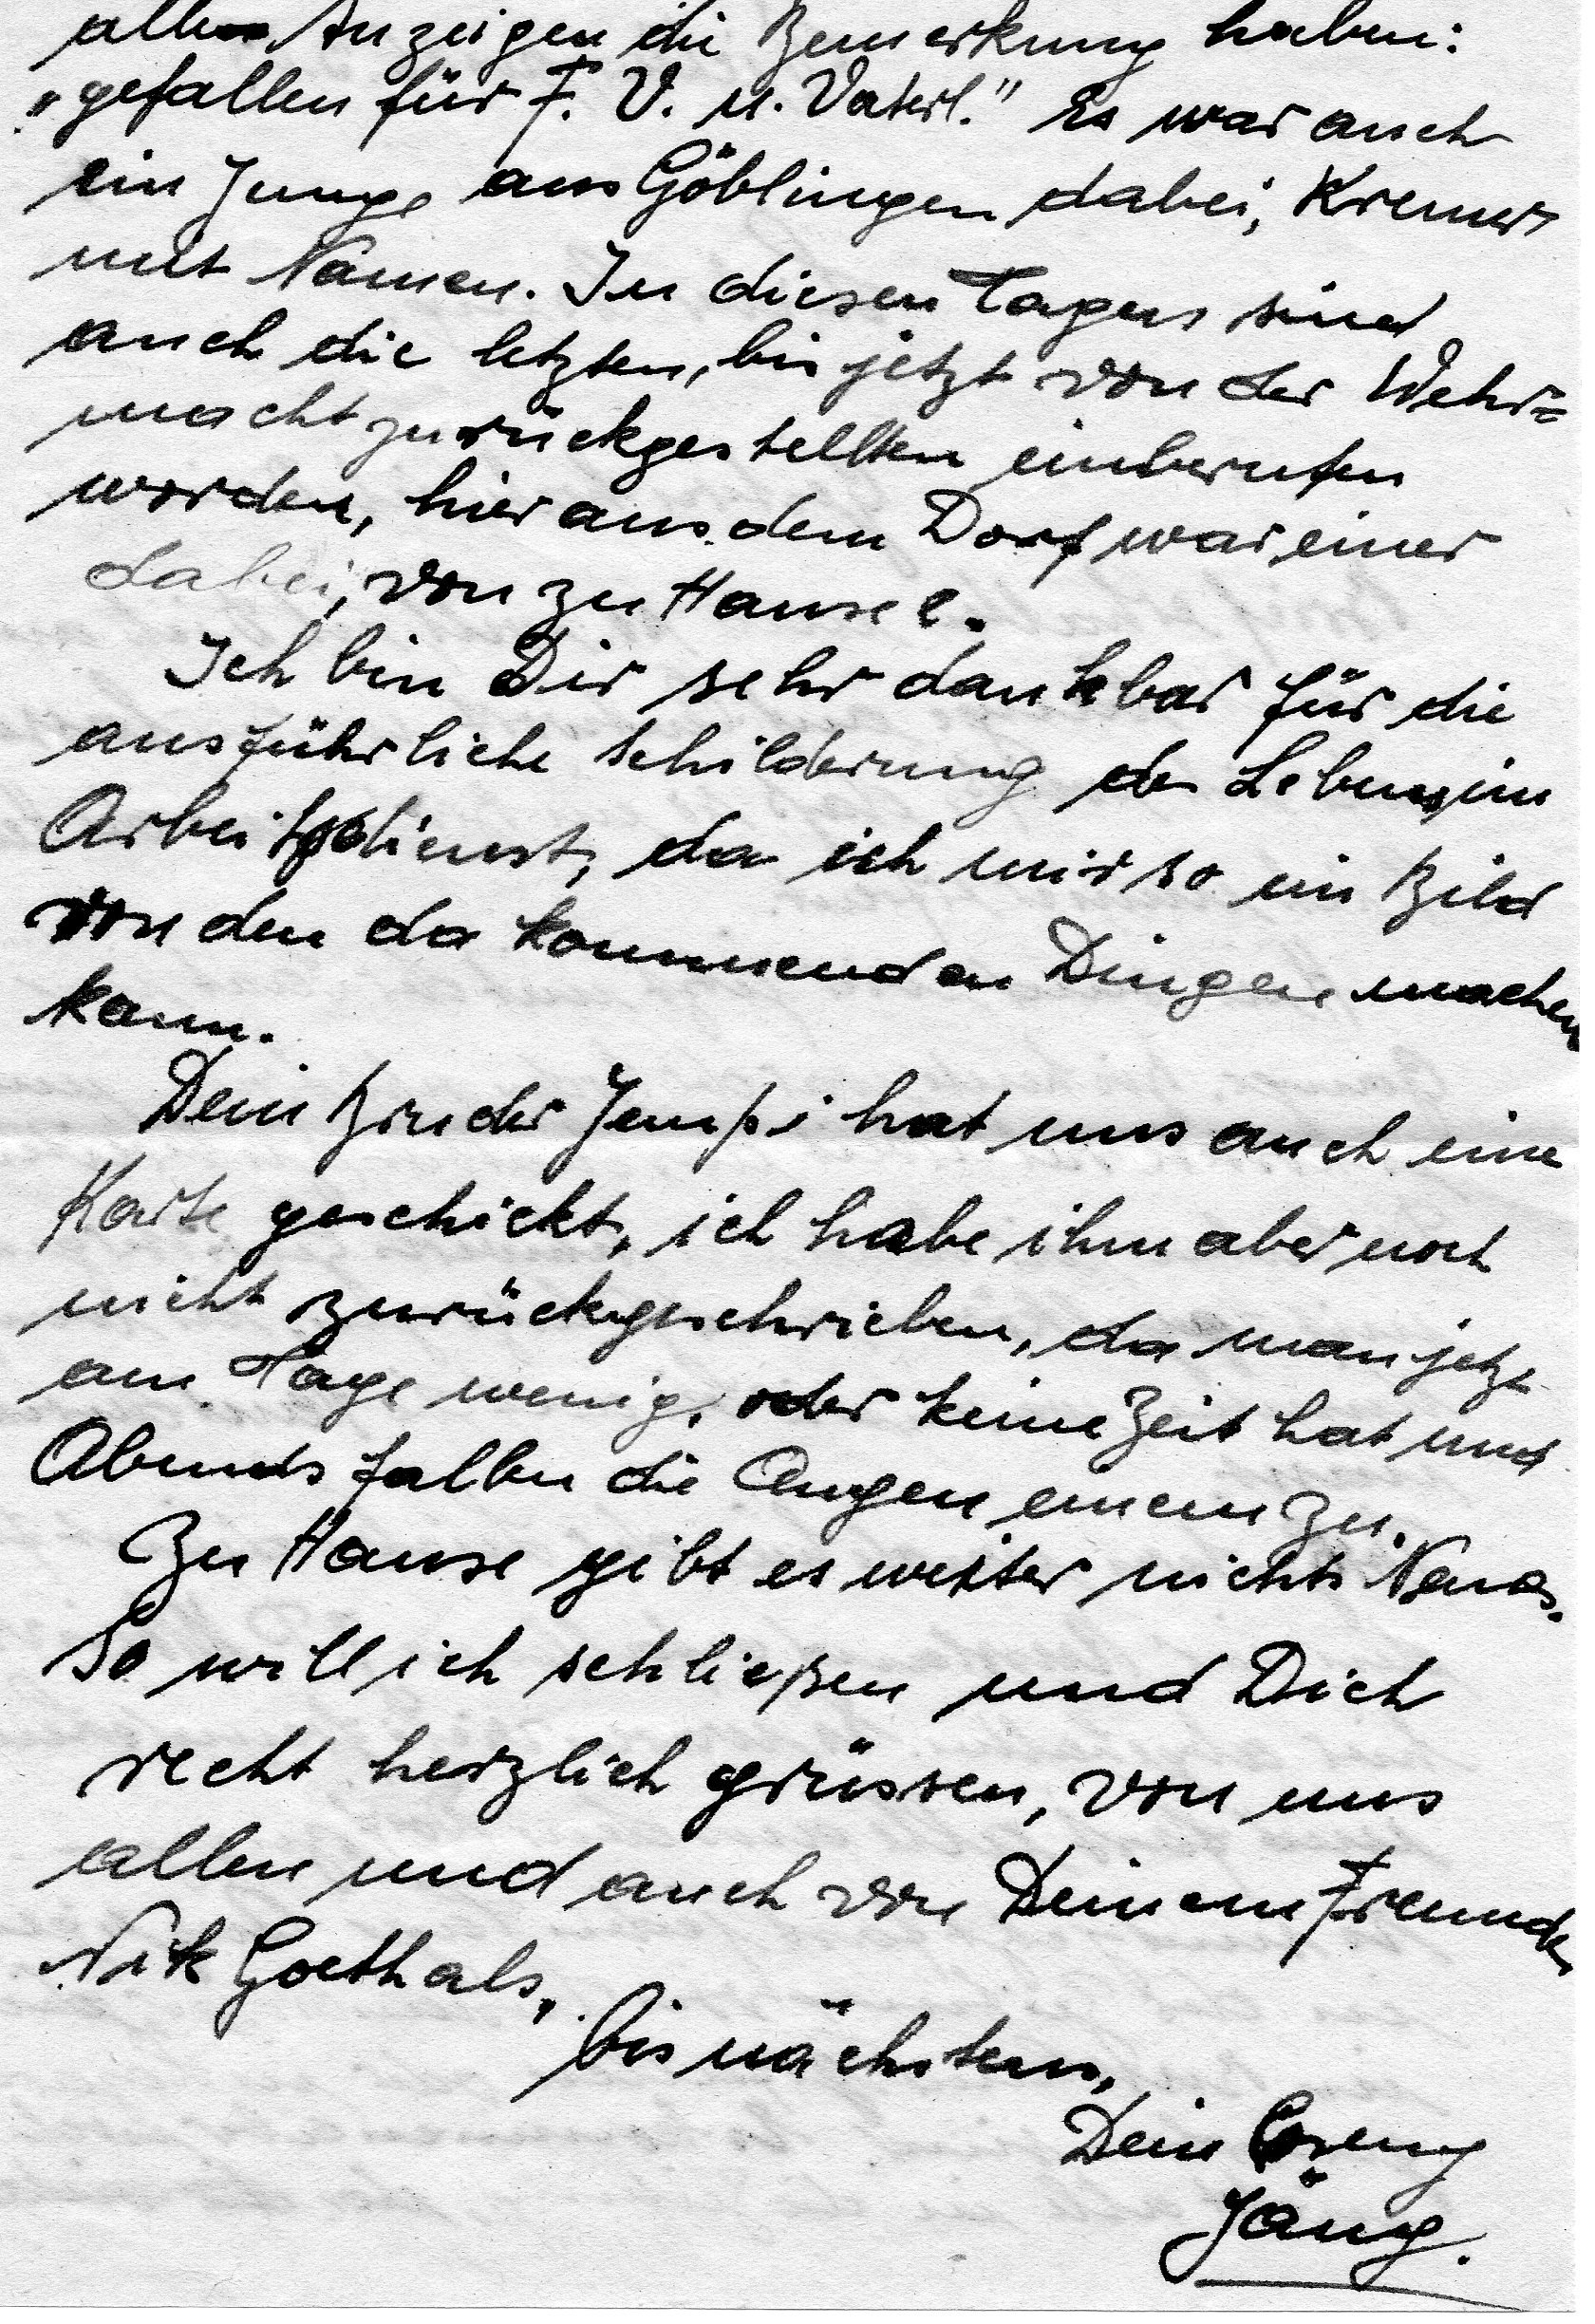 allen Anzeigen die Bemerkung haben:
„gefallen für F. V. u. Vaterl." Es war auch
ein Junge aus Göblingen dabei, Kremer
mit Namen. In diesen Tagen sind
auch die letzten, bis jetzt von der Wehr=
macht zurückgestellten einberufen
worden, hier aus dem Dorf war einer
dabei, von zu Hause l.
Ich bin Dir sehr dankbar für die
ausführliche Schilderung des Lebens im
Arbeitsdienst, da ich mir so ein Bild
von den da kommenden Dingen machen
kann.
Dein Bruder Jempi hat uns auch eine
Karte geschickt, ich habe ihm aber noch
nicht zurückgeschrieben, da man jetzt
am Tage wenig, oder keine Zeit hat und
Abends fallen die Augen einem zu.
Zu Hause gibt es weiter nichts Neues.
So will ich schließen und Dich
recht herzlich grüssen, von uns
allen und auch von Deinem Freunde
Nik Goethals,
bis nächstens,
Dein
Jäng.